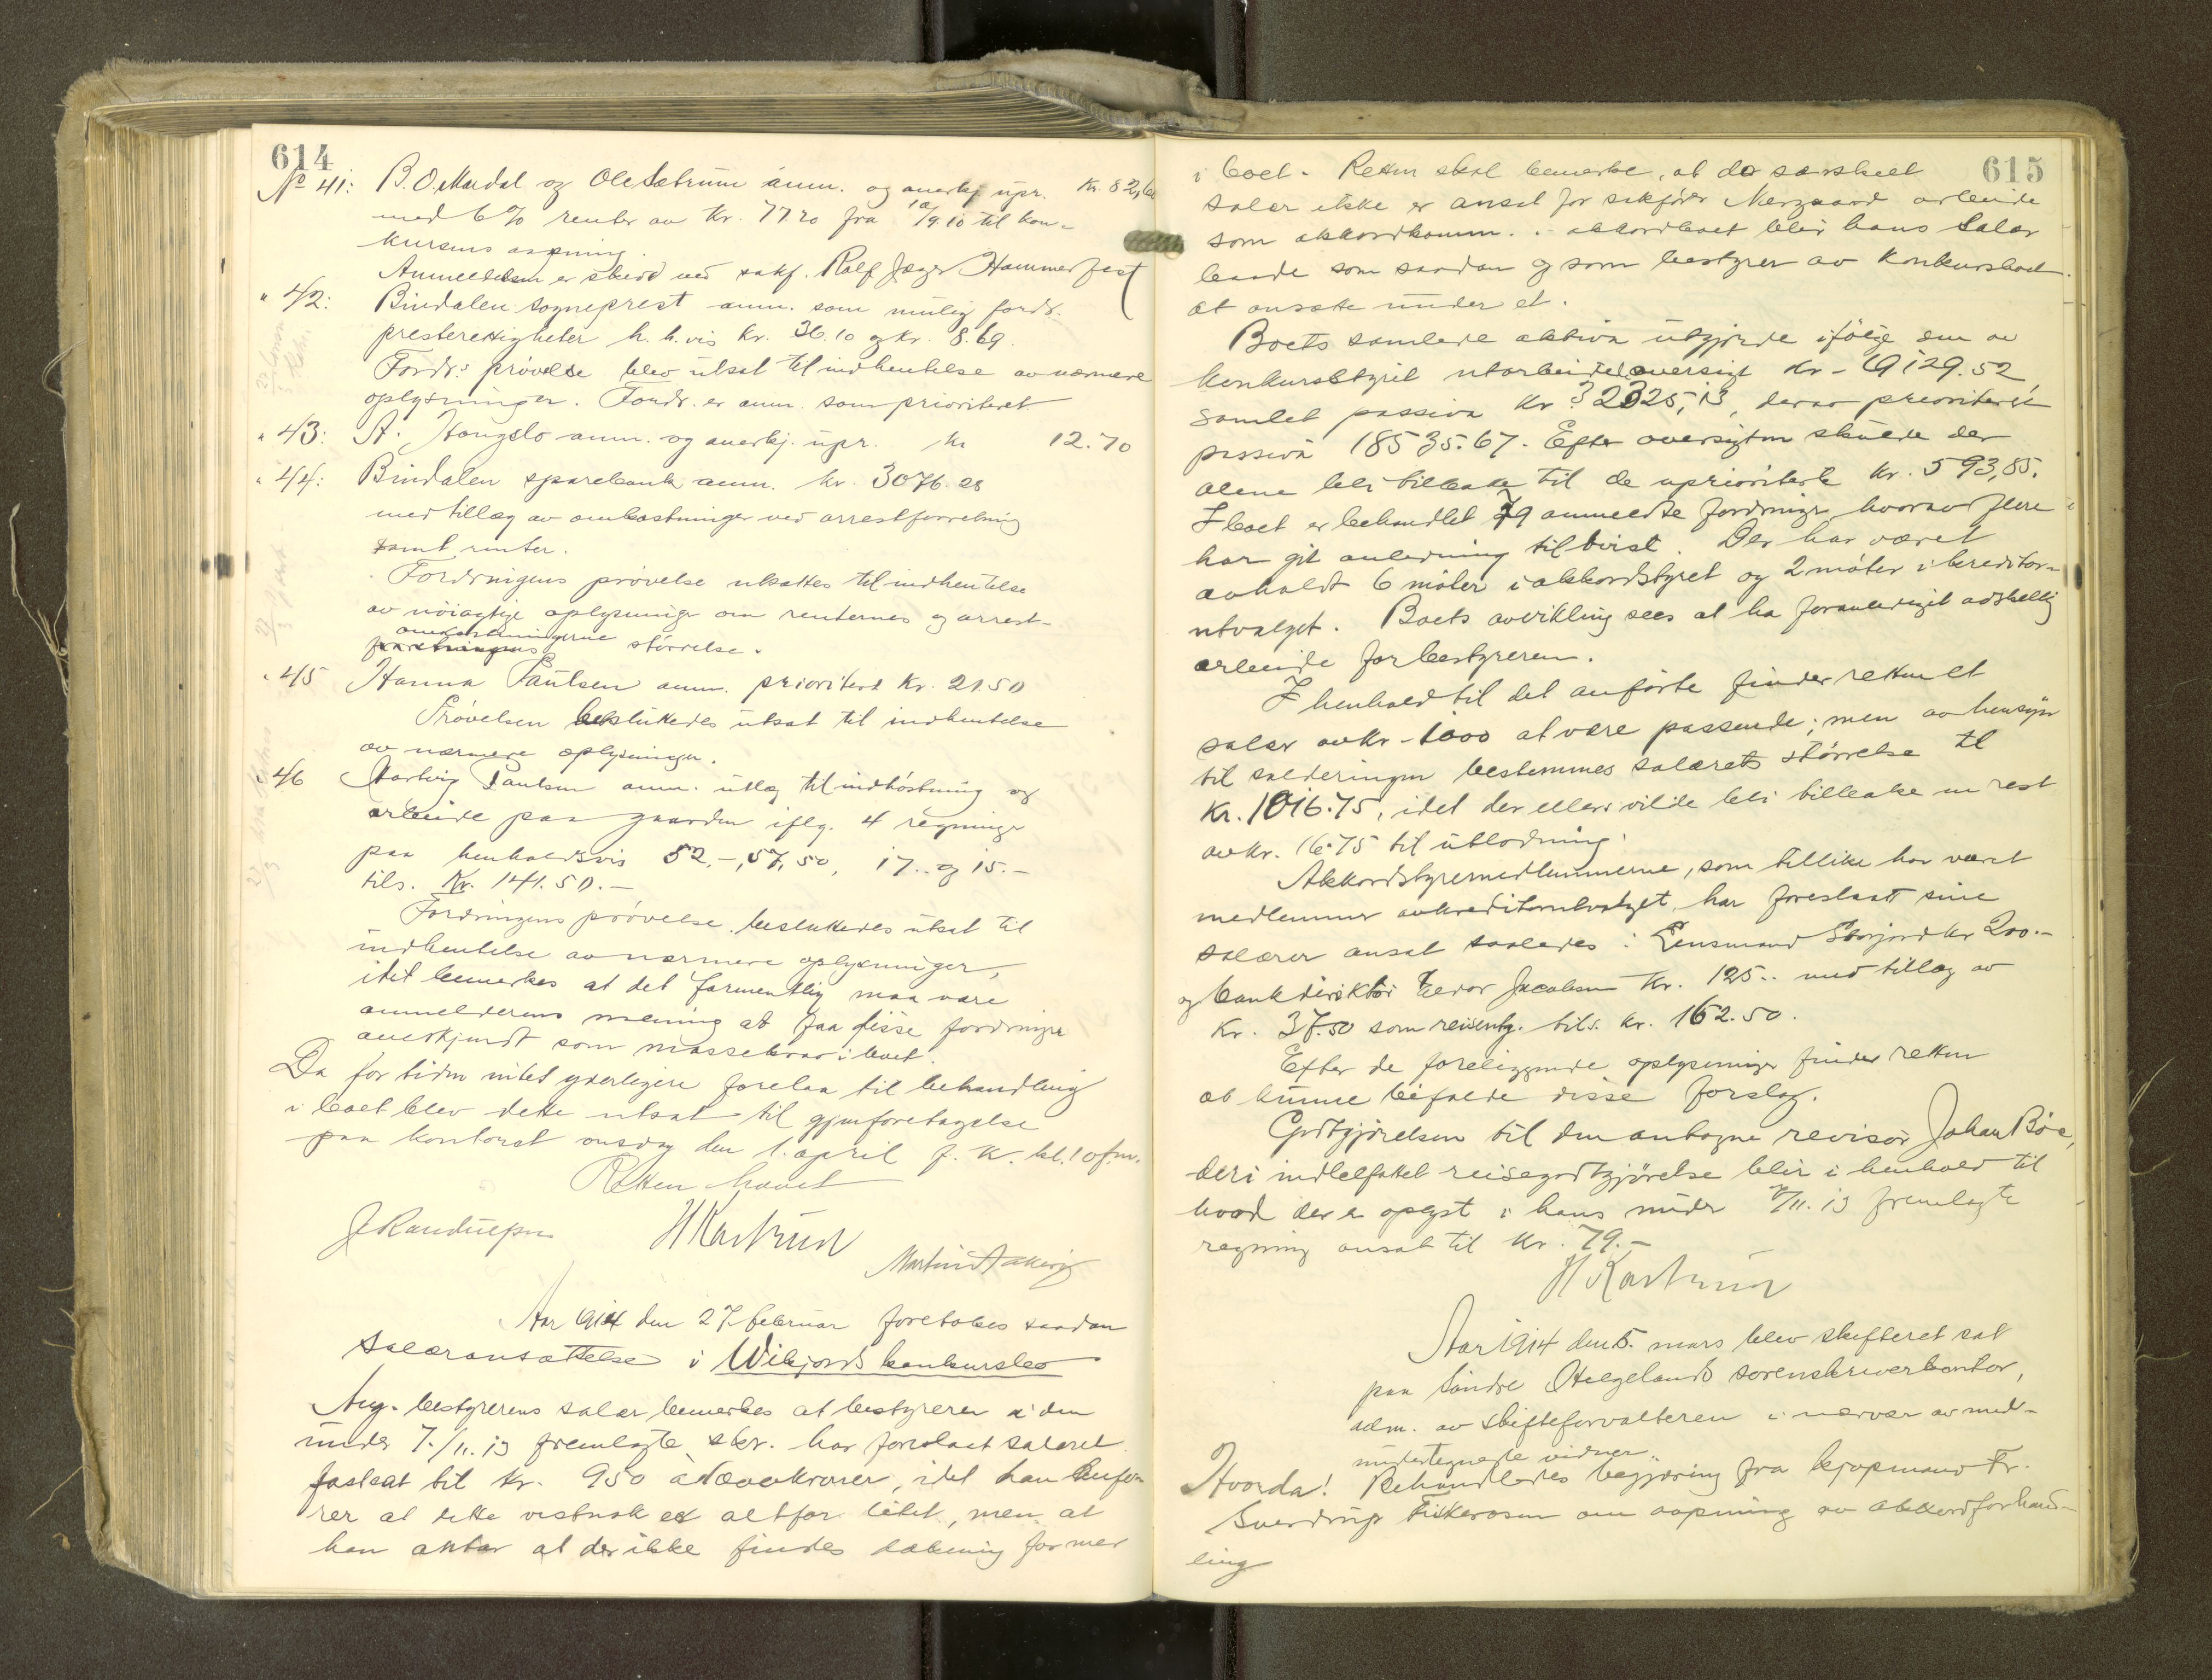 614
No 41: B. O. Mardal og Ole Sætrum anm. og anerkj. upr. Kr. 82,
med 6 % renter av Kr. 77.20 fra 10/9 10 til kon-
kursens aapning.
Anmeldelsen er skedd ved sakf. Rolf Jæger Hammerfest
" 42: Bindalen sogneprest anm. som mulig fordr.
presterettigheter h.h.vis kr. 36.10 og kr. 8.69.
Fordr.s prøvelse blev utsat til indhentelse av nærmere
oplysninger. Fordr. er anm. som prioriteret
" 43: A. Hongslo anm. og anerkj. upr. kr 12.70
" 44: Bindalen sparebank anm. kr. 3076.28
med tillæg av omkostninger ved arrestforretning
samt renter.
Fordringens prøvelse utsattes til indhentelse
av nøiagtige oplysninger om renternes og arrest-
omkostningerne
forretningens størrelse.
" 45 Hanna Paulsen anm. prioritert Kr. 21.50
Prøvelsen besluttedes utsat til indhentelse
av nærmere oplysninger.
" 46 Hartvig Paulsen anm. utlæg til indhøstning og
arbeide paa gaarden iflg. 4 regninger
paa henholdsvis 52.-, 57,50, 17.- og 15.-
tils. Kr. 141.50.-
Fordringens prøvelse besluttedes utsat til
indhentelse av nærmere oplysninger,
idet bemerkes at det formentlig maa være
anmelderens mening at faa disse fordringer
anerkjendt som massekrav i boet.
Da for tiden intet yderligere forelaa til behandling
i boet blev dette utsat til gjenforetagelse
paa kontoret onsdag den 1. april f. k. kl. 10 fm.
Retten hævet
H Kastrud
Martin Aakvig
Aar 1914 den 27. februar foretokes saadan
Salæransættelse i Wikjords konkursbo
Ang. bestyrerens salær bemerkes at bestyreren i den
under 7./11. 13 fremlagte skr. har foreslaaet salæret
fastsat til kr. 950 à 1000 kroner, idet han anfø-
rer at dette vistnok er altfor litet, men at
han antar at der ikke findes dækning for mer
615
i boet. Retten skal bemerke, at da særskilt
salær ikke er ansat for sakfører Nergaard arbeide
som akkordkomm. i akkordboet blir hans salær
baade som saadan og som bestyrer av konkursboet
at ansætte under et.
Boets samlede aktiva utgjorde ifølge den av
konkursstyret utarbeidede oversigt Kr. 19129.52,
samlet passiva Kr 32325,13, derav prioritert
passiva 18535.67. Efter oversigten skulde der
alene bli tilbake til de uprioriterte Kr. 593,85.
I boet er behandlet 79 anmeldte fordringer hvorav flere
har git anledning til tvist. Der har været
avholdt 6 møter i akkordstyret og 2 møter i kreditor-
utvalget. Boets avvikling sees at ha foranlediget adskillig
arbeide for bestyreren.
I henhold til det anførte finder retten et
salær av Kr. 1000 at være passende; men av hensyn
til salderingen bestemmes salærets størrelse til
Kr. 1016.75, idet der ellers vilde bli tilbake en rest
av Kr. 16.75 til utlodning.
Akkordstyremedlemmerne, som tillike har været
medlemmer av kreditorutvalget, har foreslaat sine
salærer ansat saaledes: Lensmand Storjord kr 200.-
og bankdirektør Jacobsen Kr. 125.- med tillæg av
Kr. 37.50 som reiseutg. tils. Kr. 162.50.
Efter de foreliggende oplysninger finder retten
at kunne bifalde disse forslag.
Godtgjørelsen til den antagne revisor Johan Bøe,
deri indbefattet reisegodtgjørelse blir i henhold til
hvad der er oplyst i hans under 7/11. 13 fremlagte
regning ansat til Kr. 79.-
H Kastrud
Aar 1914 den 5. mars blev skifteret sat
paa Søndre Helgelands sorenskriverkontor,
adm. av skifteforvalteren i nærvær av med-
undertegnede vidner.
Hvorda! Behandledes begjæring fra kjøpmand Fr.
Sverdrup Fiskerosen om aapning av akkordforhand-
ling